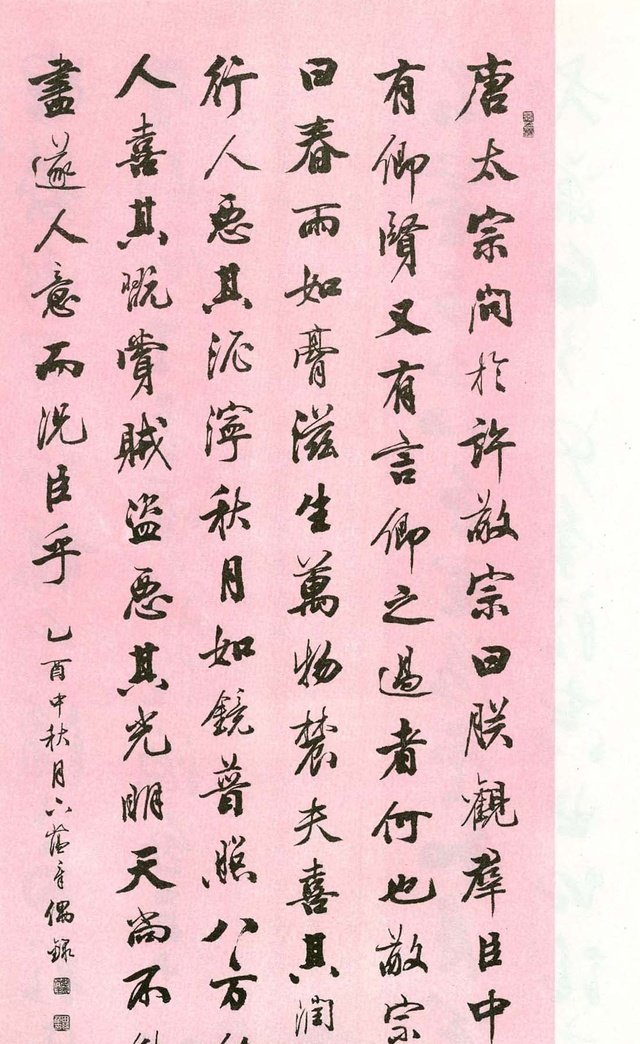 唐太宗問於許敬宗曰朕觀羣臣中
有卿賢又有言卿之過者何也敬宗
曰春雨如膏滋生萬物農夫喜其潤
行人惡其泥濘秋月如鏡普照八方
人喜其玩賞賊盜惡其光明天尚不
盡遂人意而況臣乎
乙酉中秋月六偶錄